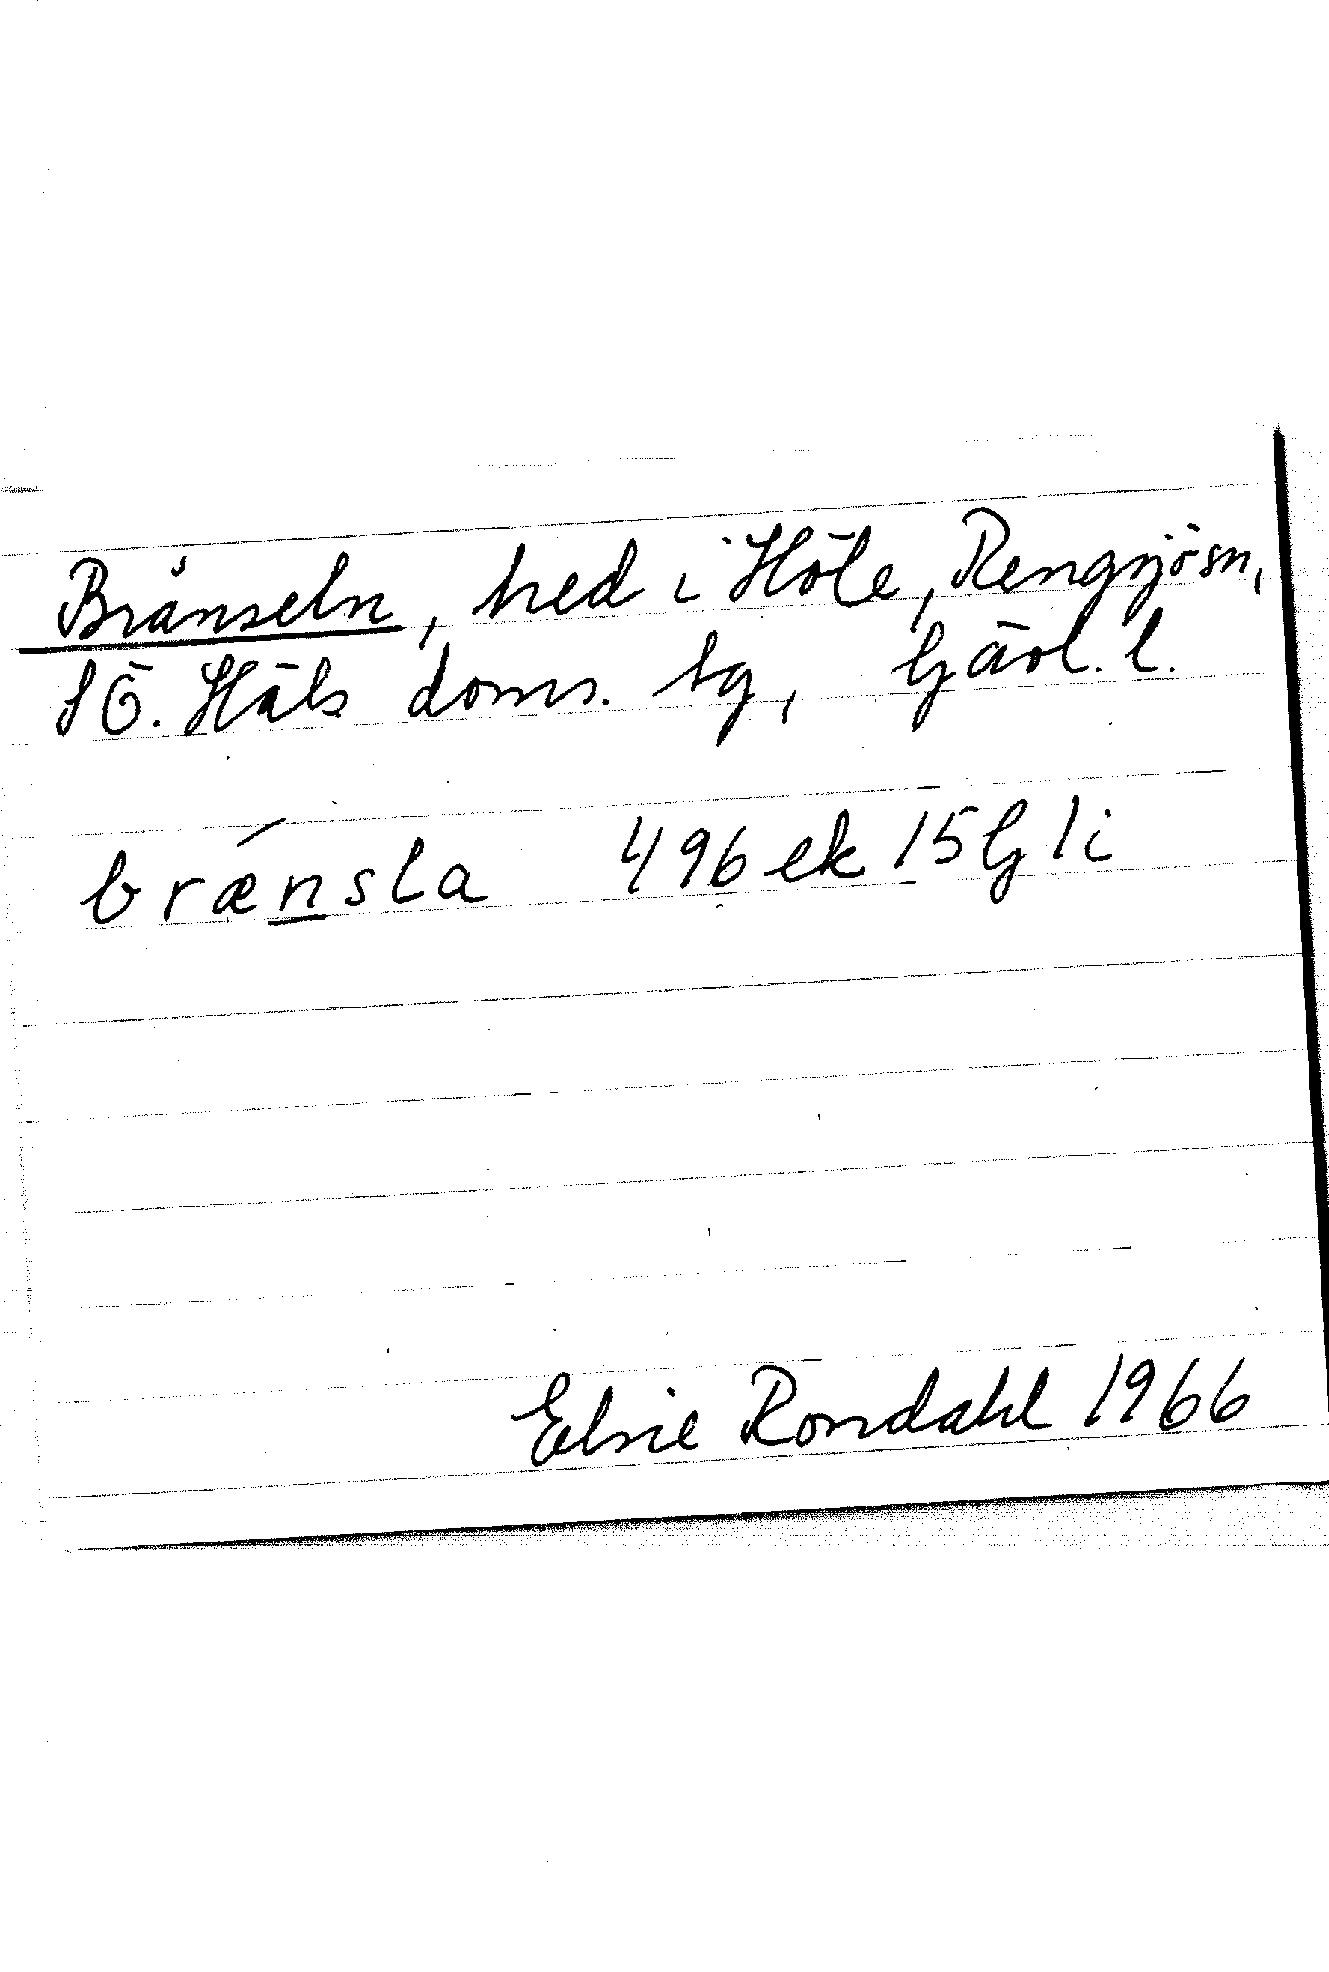 Bränseln, hed i Höle, Rengsjösn,
SÖ. Häls doms. tg, Gävl. l.
brænsla 496 ek 15G 1i
Elsie Rondahl 1966